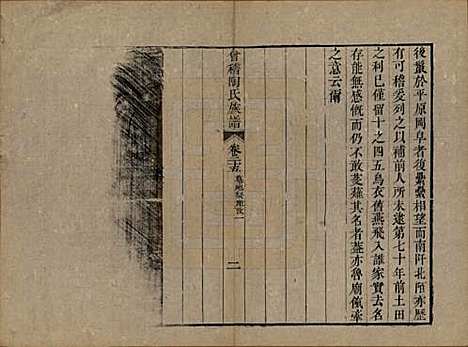 後葬於平原岡阜者復纍纍相望而南阡北陌亦歷
有可稽爰列之以補前人所未逮第七十年前土田
之利已僅留十之四五烏衣舊燕飛入誰家實去名
存能無感慨而仍不敢芟薙其名者蓋亦魯廟餼羊
之意云爾
會稽陶氏族譜
卷二十五
二